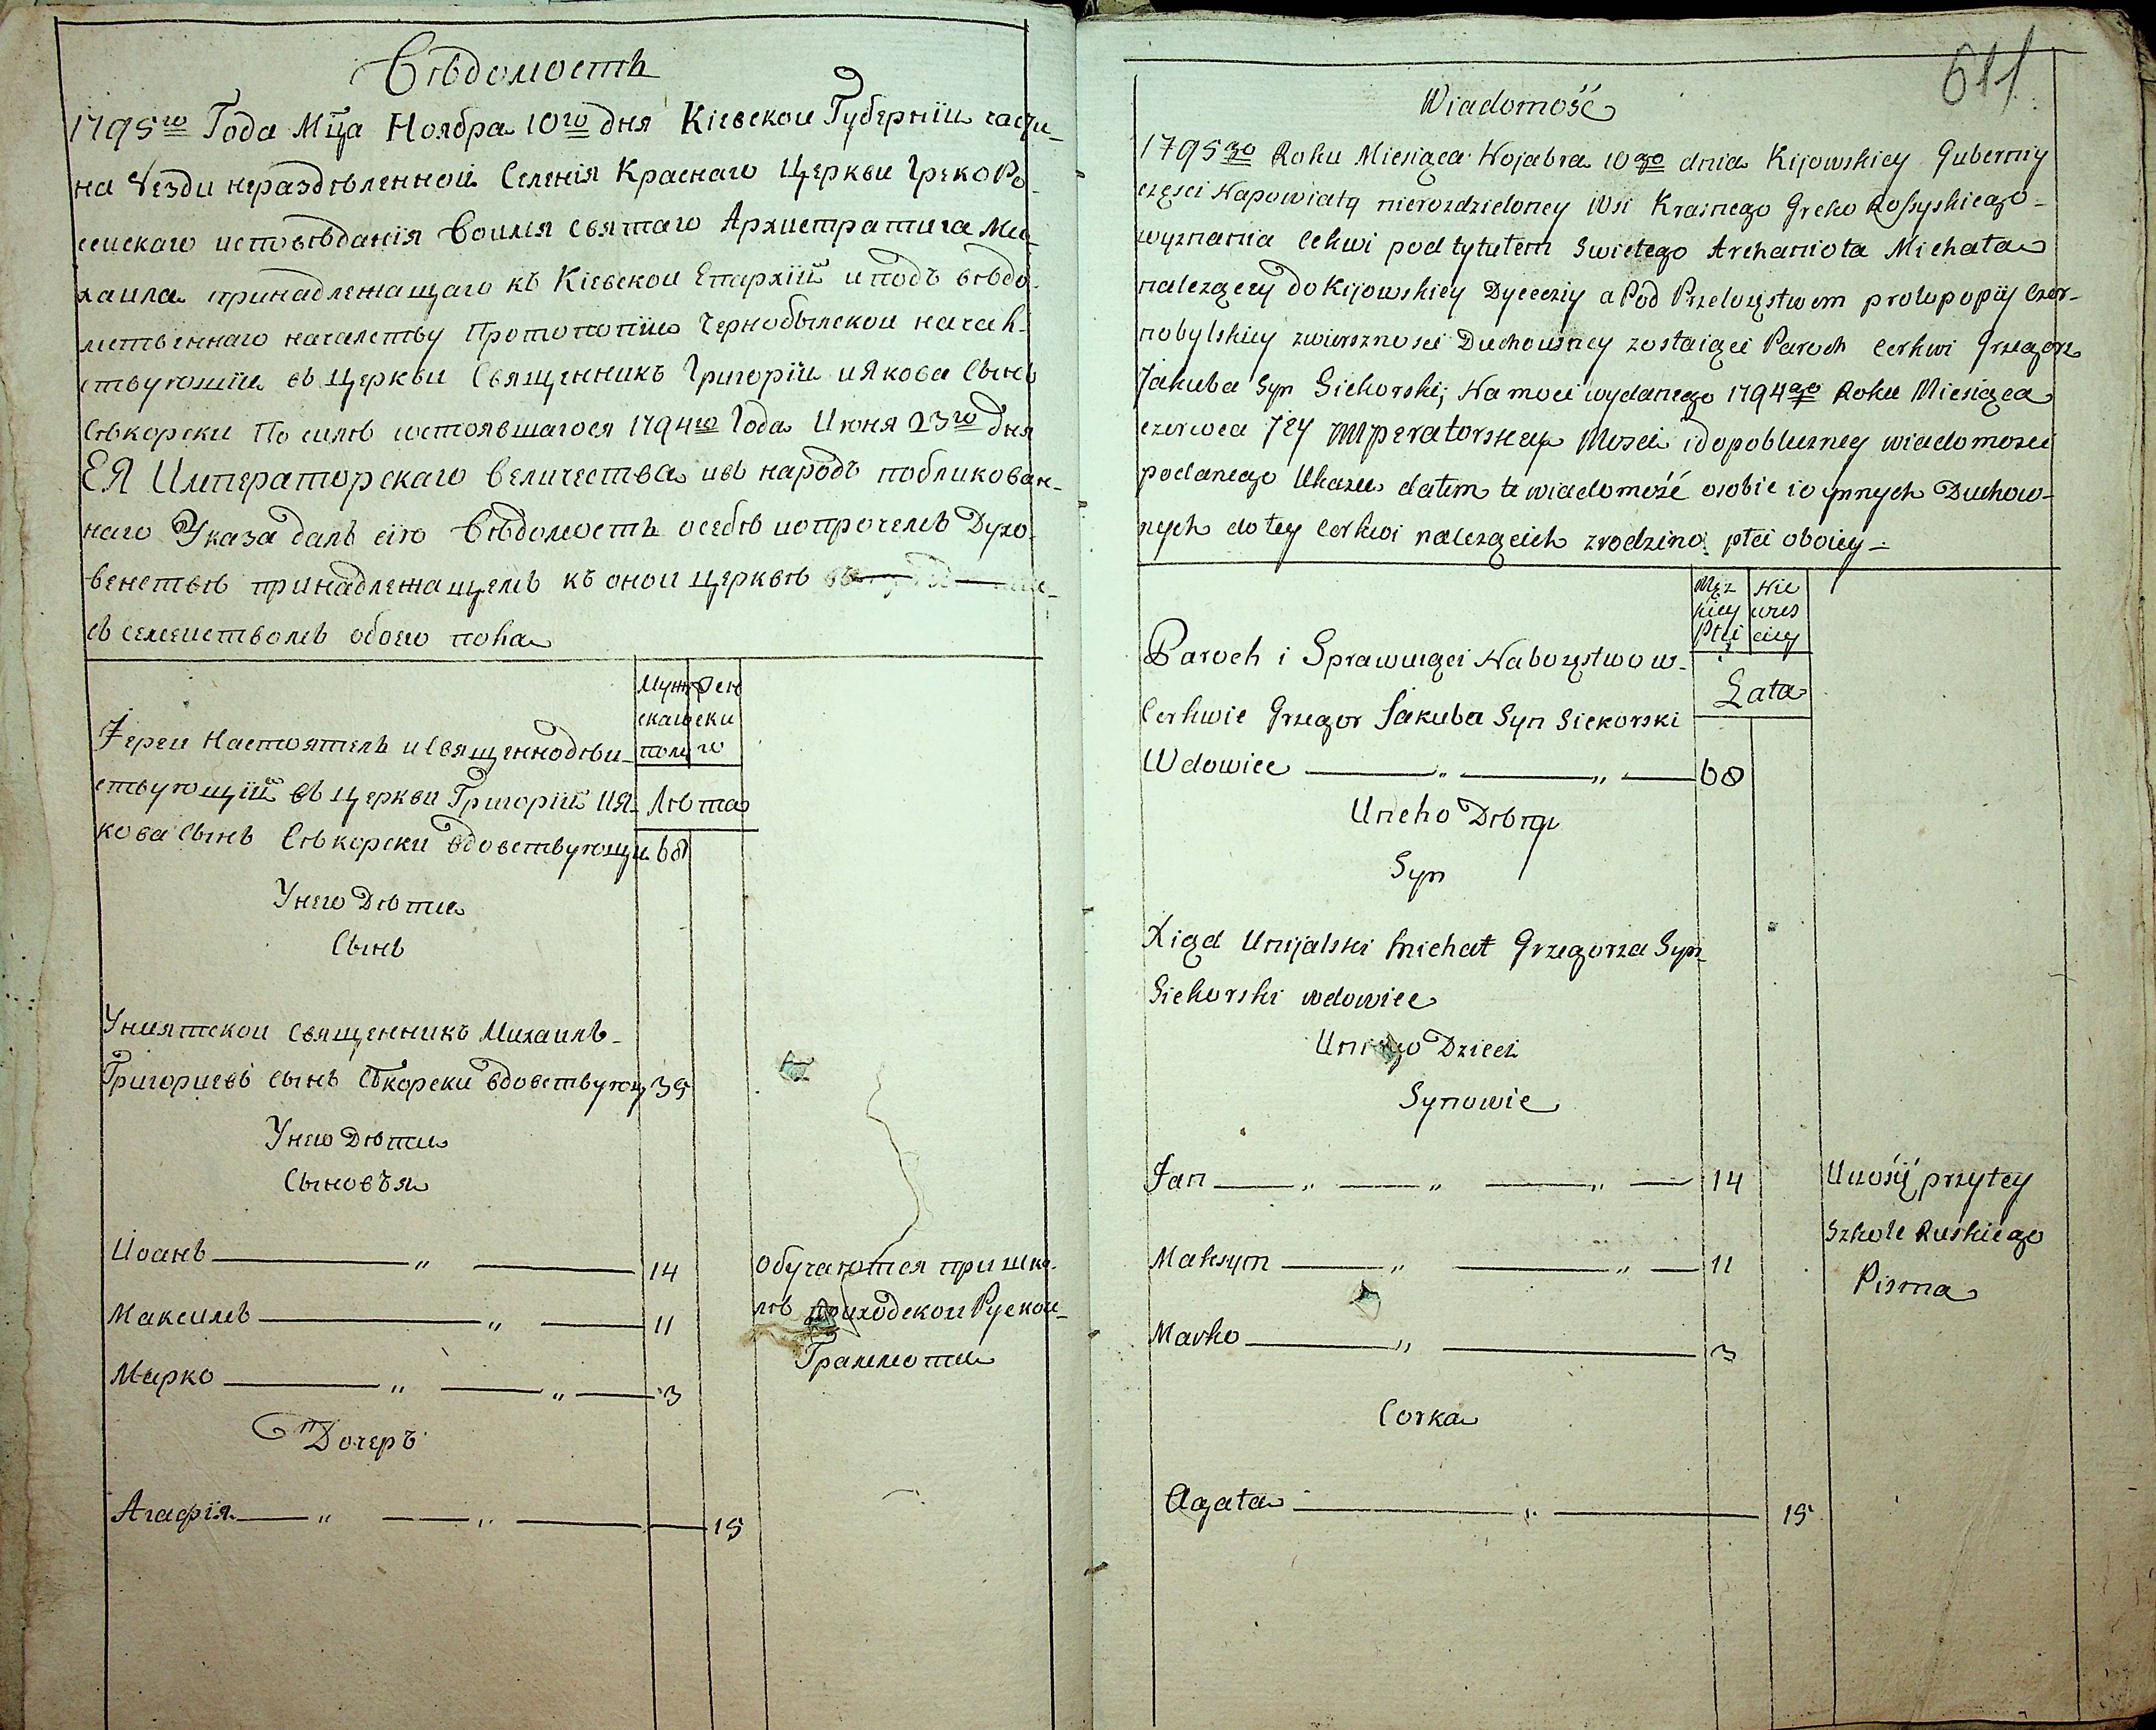 Вѣдомость
1795го Года Мца Ноября 10го дня Кіевской Губерніи части
на Уезди нераздѣленной Селенія Краснаго Церкви Греко Ро-
сейскаго исповѣданія Воимя святаго Архистратига Ми-
хаила принадлежащаго къ Кіевской Епархіи и подъ вѣдо-
мственнаго началству Протопопіи Чернобылской началь-
ствующіи въ церкви Священникъ Григоріи иякова Сынъ
Сѣкорски По силѣ состоявшагося 1794го Года Июня 23го Дня
ЕЯ Императорскаго Величества ивъ народъ побликован-
наго Указа далъ сію Вѣдомость о себѣ и о прочемъ Духо-
венствѣ принадлежащемъ къ оной церквѣ
съ семействомъ обоего пола
Муж Жен
скаго ски
полу го
Лѣта
Іереи Настоятель и Священнодѣи-
ствующіи въ церкви Григоріи ия-
кова Сынъ Сѣкорски вдовствующи 68
Унего Дѣти
Сынъ
Униятской священникъ Михаилъ
Григориевъ сынъ Сѣкорски вдовствующ 35
Унего Дѣти
Сыновъя
Иоанъ 14
Максимъ 11
Марко 3
обучаются при шко-
лѣ приходской Руской
Граммоти
Дочеръ
Агафія 15
611
Wiadomość
1795go Roku Miesiąca Nojabra 10go dnia Kijowskiey Guberniy
częsci Napowiaty nierozdzieloney Wsi Krasnego Greko Rossyskiego
wyznania Cekwi pod tytułem Swietego Archanioła Michała
nalezącey do Kijowskiey Dyeceziy a Pod Przełozstwem protopopiy Czer-
nobylskiey zwiersznosci Duchowney zostaiąci Paroch Cerkwi Grzegorz
Jakuba Syn Siekorski, Na moci wydanego 1794go Roku Miesiąca
czerwca Jey Imperatorskey Mosci i dopobliczney wiadomosci
podanego Ukazu dałem te wiadomość osobie i o ynnych Duchow-
nych do tey Cerkwi nalezącich z rodzino płci oboiey
Męz Nie
kiey wies
Płci ciey
Łata
Paroch i Sprawuiąci Nabozstwo w
Cerkwie Grzegor Jakuba Syn Siekorski
Wdowiec 68
Uneho Dѣty
Syn
Xiąd Unijatski Michał Grzegorza Syn
Siekorski wdowiec
Uniego Dzieci
Synowie
Jan 14
Maksym 11
Marko 3
Uczośiį przy tey
Szkole Ruskiego
Pisma
Corka
Agata 15